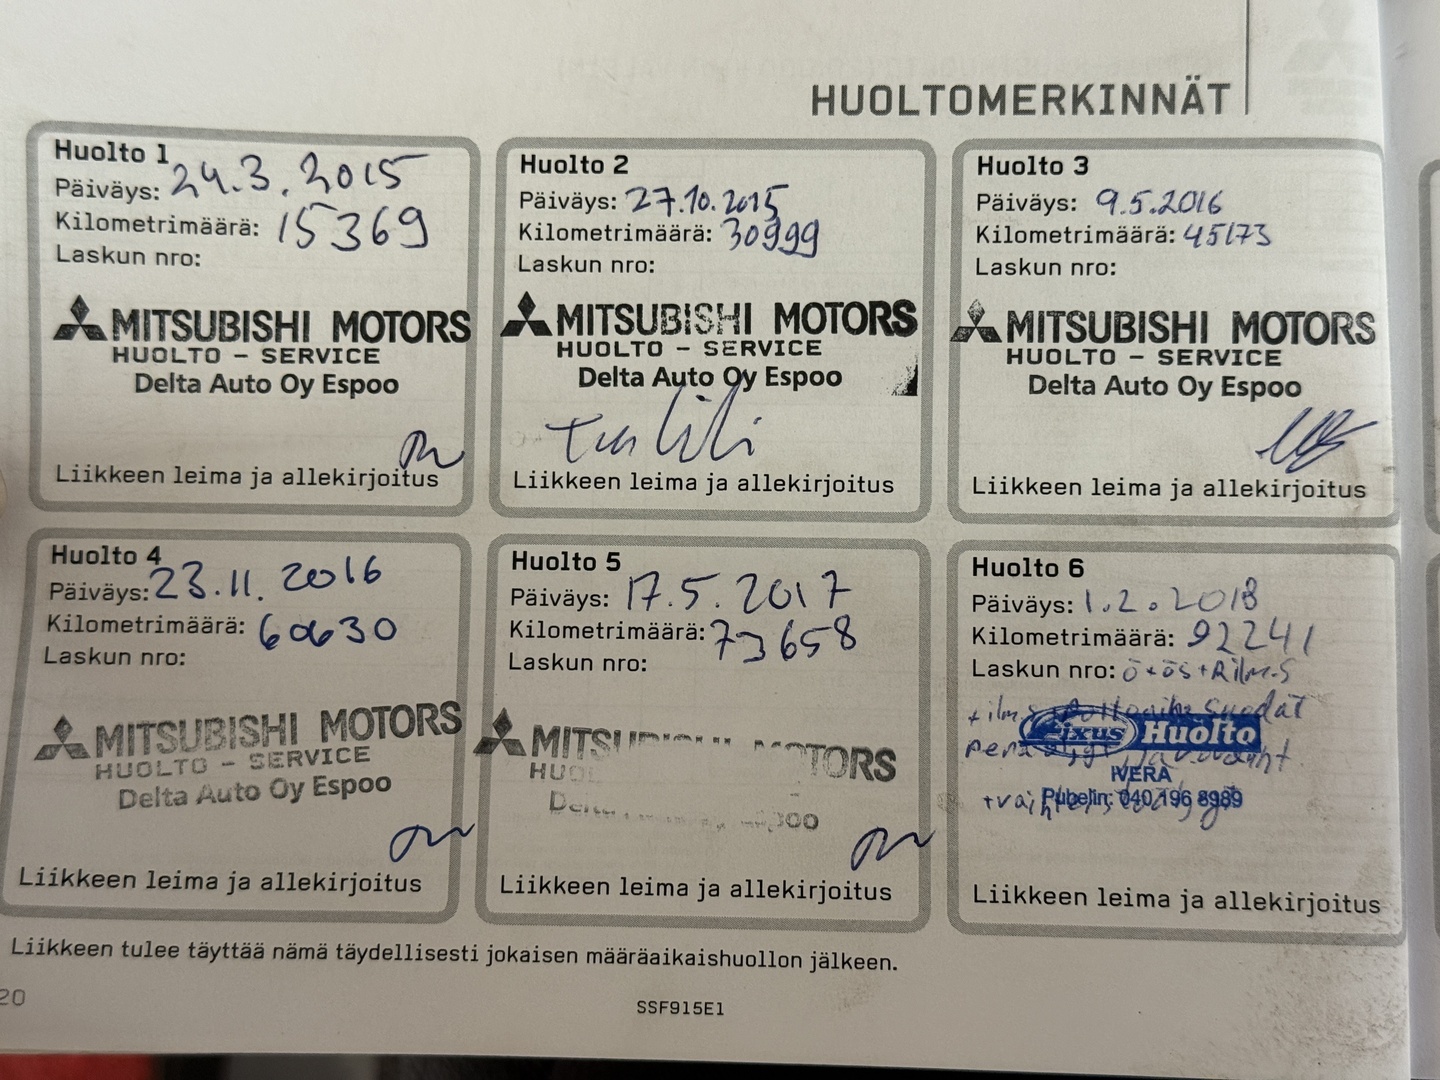 HUOLTOMERKINNÄT
Huolto 1
Päiväys: 24.3.2015
Kilometrimäärä: 15369
Laskun nro:
MITSUBISHI MOTORS
HUOLTO - SERVICE
Delta Auto Oy Espoo
Liikkeen leima ja allekirjoitus
Huolto 2
Päiväys: 27.10.2015
Kilometrimäärä: 30999
Laskun nro:
MITSUBISHI MOTORS
HUOLTO - SERVICE
Delta Auto Oy Espoo
Liikkeen leima ja allekirjoitus
Huolto 3
Päiväys: 9.5.2016
Kilometrimäärä: 45173
Laskun nro:
MITSUBISHI MOTORS
HUOLTO - SERVICE
Delta Auto Oy Espoo
Liikkeen leima ja allekirjoitus
Huolto 4
Päiväys: 23.11.2016
Kilometrimäärä: 60630
Laskun nro:
MITSUBISHI MOTORS
HUOLTO - SERVICE
Delta Auto Oy Espoo
Liikkeen leima ja allekirjoitus
Huolto 5
Päiväys: 17.5.2017
Kilometrimäärä: 73658
Laskun nro:
MITSUBISHI MOTORS
Liikkeen leima ja allekirjoitus
Huolto 6
Päiväys: 1.2.2018
Kilometrimäärä: 92241
Laskun nro: ö+ös+Rilm.s
Fixus Huolto
IVERA
Puhelin: 040 196 8989
Liikkeen leima ja allekirjoitus
Liikkeen tulee täyttää nämä täydellisesti jokaisen määräaikaishuollon jälkeen.
20
SSF915E1